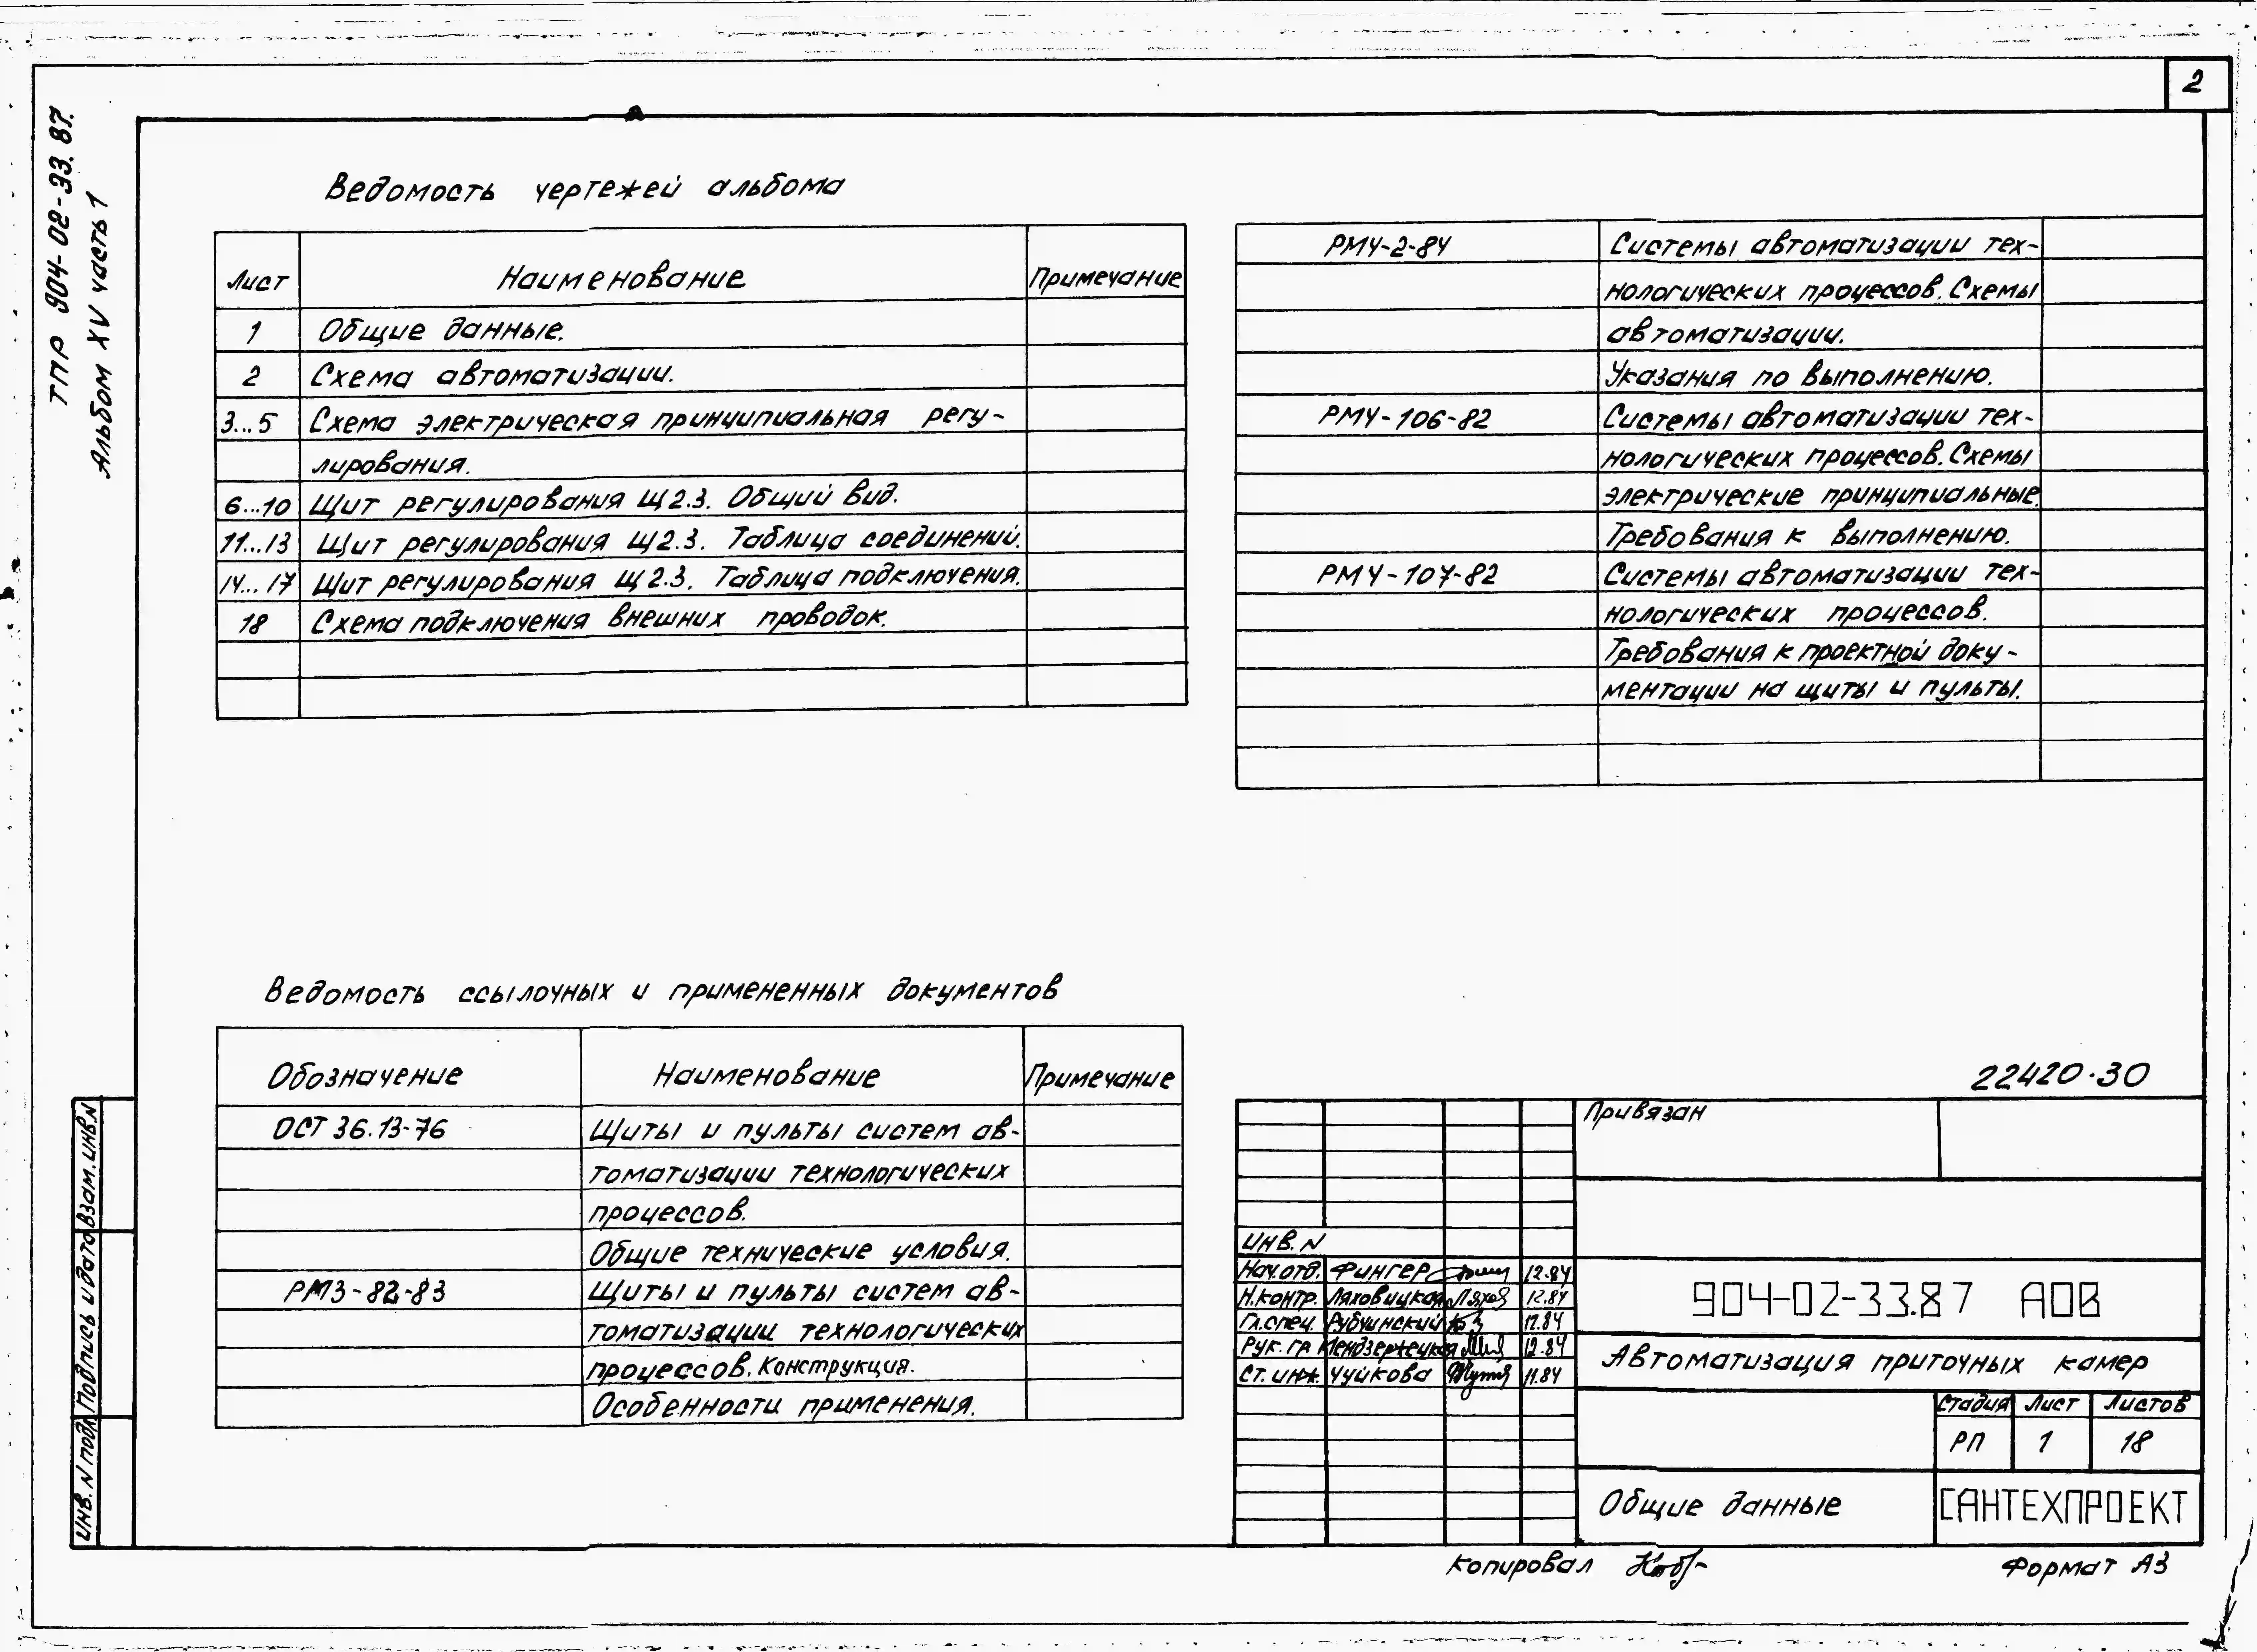 2
ТПР 904-02-33.87.
Альбом XV часть 1
Ведомость чертежей альбома
Лист Наименование Примечание
1 Общие данные.
2 Схема автоматизации.
3...5 Схема электрическая принципиальная регу-
лирования.
6...10 Щит регулирования Щ2.3. Общий вид.
11...13 Щит регулирования Щ2.3. Таблица соединений.
14...17 Щит регулирования Щ2.3. Таблица подключения.
18 Схема подключения внешних проводок.
РМ4-2-84 Системы автоматизации тех-
нологических процессов. Схемы
автоматизации.
Указания по выполнению.
РМ4-106-82 Системы автоматизации тех-
нологических процессов. Схемы
электрические принципиальные.
Требования к выполнению.
РМ4-107-82 Системы автоматизации тех-
нологических процессов.
Требования к проектной доку-
ментации на щиты и пульты.
Ведомость ссылочных и примененных документов
Обозначение Наименование Примечание
ОСТ 36.13-76 Щиты и пульты систем ав-
томатизации технологических
процессов.
Общие технические условия.
РМ3-82-83 Щиты и пульты систем ав-
томатизации технологических
процессов. Конструкция.
Особенности применения.
22420-30
Привязан
Инв. N
Нач. отд. Фингер 12.84
Н.контр. Ляховицкая 12.84
Гл. спец. Рубчинский 12.84
Рук. гр. Мендзержецкая 12.84
Ст. инж. Чуйкова 11.84
904-02-33.87 АОВ
Автоматизация приточных камер
Стадия Лист Листов
РП 1 18
Общие данные
САНТЕХПРОЕКТ
Взам. инв. N
Подпись и дата
Инв. N подл.
Копировал
Формат А3